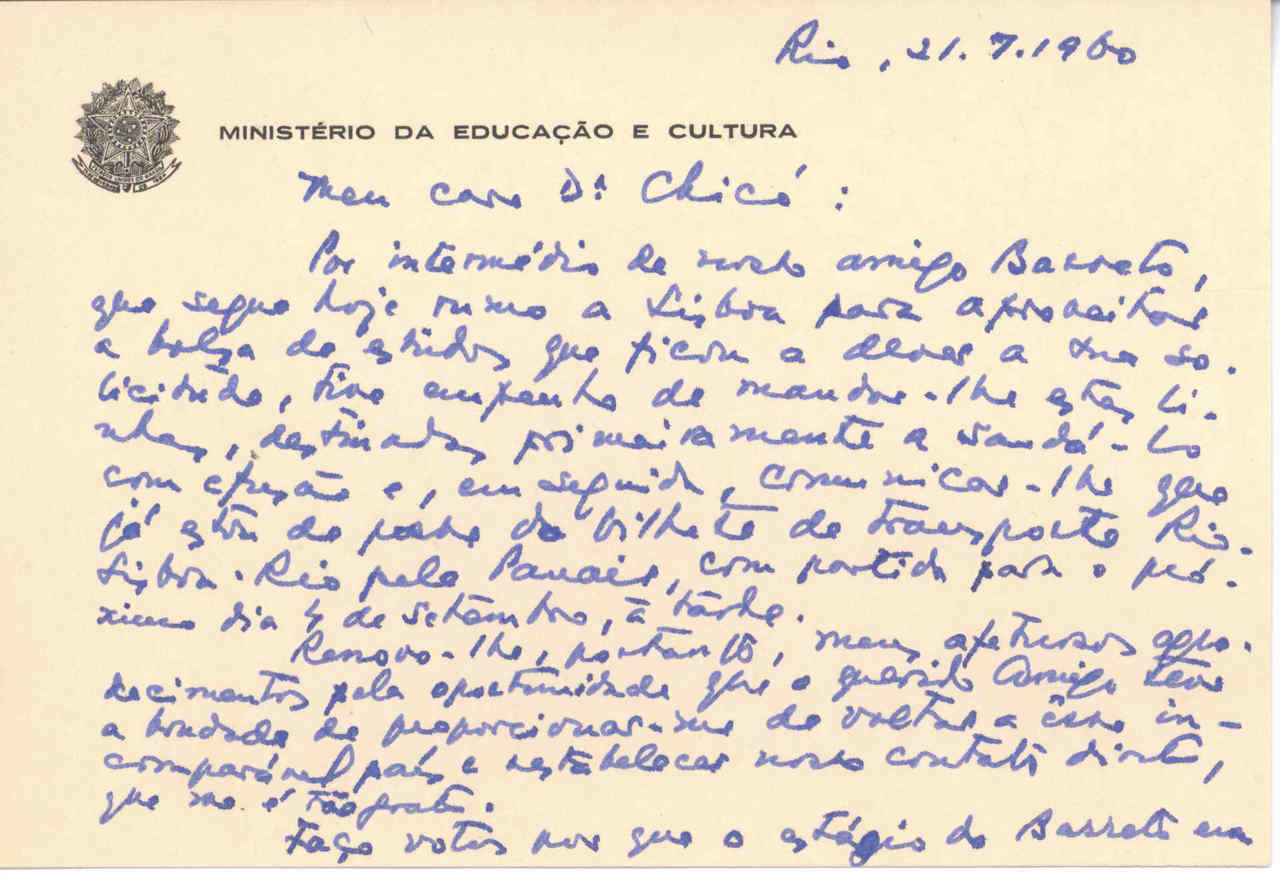 Rio, 21.7.1960
MINISTÉRIO DA EDUCAÇÃO E CULTURA
Meu caro Dr. Chicó:
Por intermédio de nosso amigo Barreto,
que segue hoje rumo a Lisboa para aproveitar
a bolsa de estudos que ficou a dever a sua so-
licitude, tive empenho de mandar-lhe estas li-
nhas, destinadas primeiramente a saudá-lo
com efusão e, em seguida, comunicar-lhe que
já estou de posse do bilhete de transporte Rio-
Lisboa-Rio pela Panair, com partida para o pró-
ximo dia 4 de setembro, à tarde.
Renovo-lhe, portanto, meus afetuosos agra-
decimentos pela oportunidade que o querido Amigo teve
a bondade de proporcionar-me de voltar a êsse in-
comparável país e restabelecer nosso contato direto,
que me é tão grato.
Faço votos por que o estágio do Barreto em